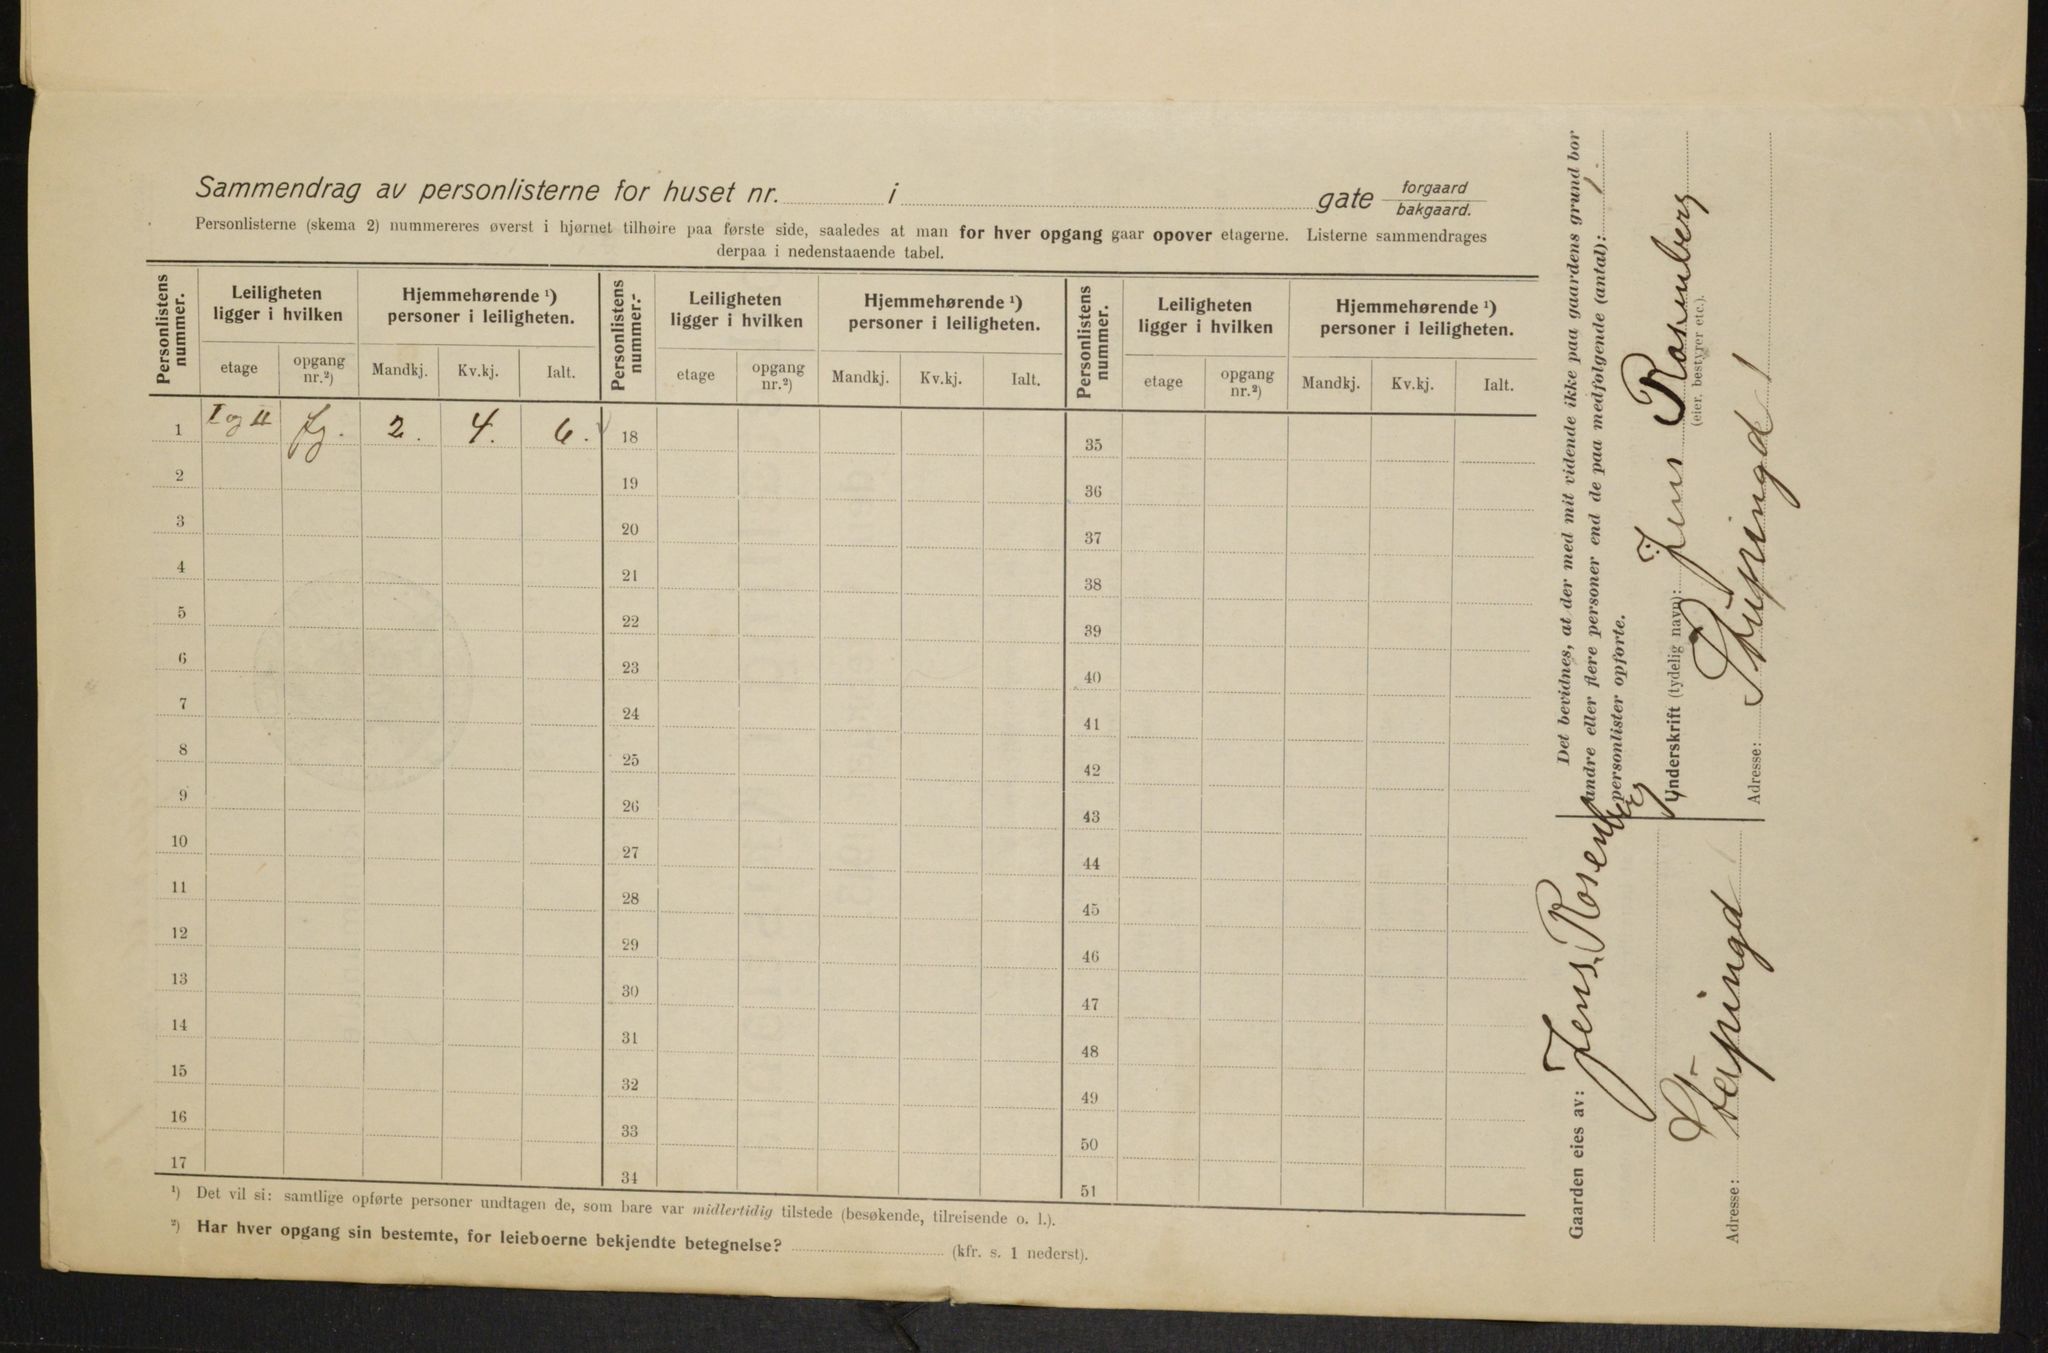 Sammendrag av personlisterne for huset nr. i gate forgaard
bakgaard.
Personlisterne (skema 2) nummereres øverst i hjørnet tilhøire paa første side, saaledes at man for hver opgang gaar opover etagerne. Listerne sammendrages
derpaa i nedenstaaende tabel.
Personlistens nummer. Leiligheten ligger i hvilken Hjemmehørende ¹) personer i leiligheten. Personlistens nummer.- Leiligheten ligger i hvilken Hjemmehørende ¹) personer i leiligheten. Personlistens nummer. Leiligheten ligger i hvilken Hjemmehørende ¹) personer i leiligheten.
etage opgang nr.²) Mandkj. Kv.kj. Ialt. etage opgang nr.²) Mandkj. Kv.kj. Ialt. etage opgang nr.²) Mandkj. Kv.kj. Ialt.
1 I og II fg. 2. 4. 6. 18 35
2 19 36
3 20 37
4 21 38
5 22 39
6 23 40
7 24 41
8 25 42
9 26 43
10 27 44
11 28 45
12 29 46
13 30 47
14 31 48
15 32 49
16 33 50
17 34 51
¹) Det vil si: samtlige opførte personer undtagen de, som bare var midlertidig tilstede (besøkende, tilreisende o. l.).
²) Har hver opgang sin bestemte, for leieboerne bekjendte betegnelse? (kfr. s. 1 nederst).
Gaarden eies av: Jens Rosenberg
Adresse: Støpingd
Det bevidnes, at der med mit vidende ikke paa gaardens grund bor
andre eller flere personer end de paa medfølgende (antal): 1.
personlister opførte.
Underskrift (tydelig navn): Jens Rosenberg
(eier, bestyrer etc.).
Adresse: Støpingd 1